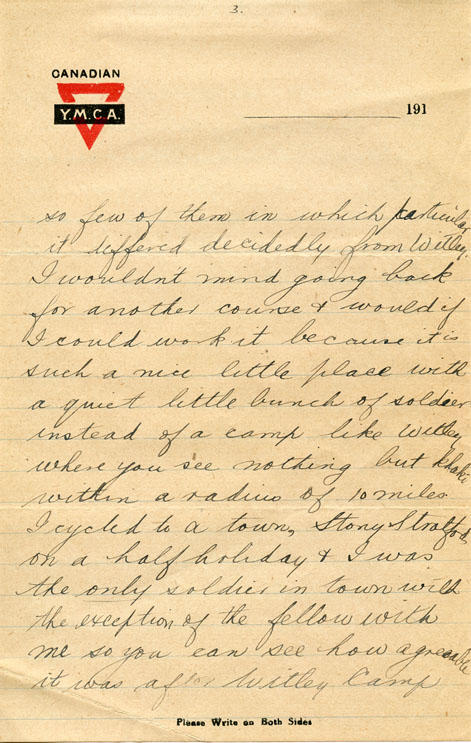 3.
CANADIAN
Y.M.C.A.
191
so few of them in which particular
it differed decidedly from Witley.
I wouldn't mind going back
for another course & would if
I could work it because it is
such a nice little place with
a quiet little bunch of soldier
instead of a camp like Witley
where you see nothing but khaki
within a radius of 10 miles
I cycled to a town, Stony Stratford
on a half holiday & I was
the only soldier in town with
the exception of the fellow with
me so you can see how agreeable
it was after Witley Camp
Please Write on Both Sides